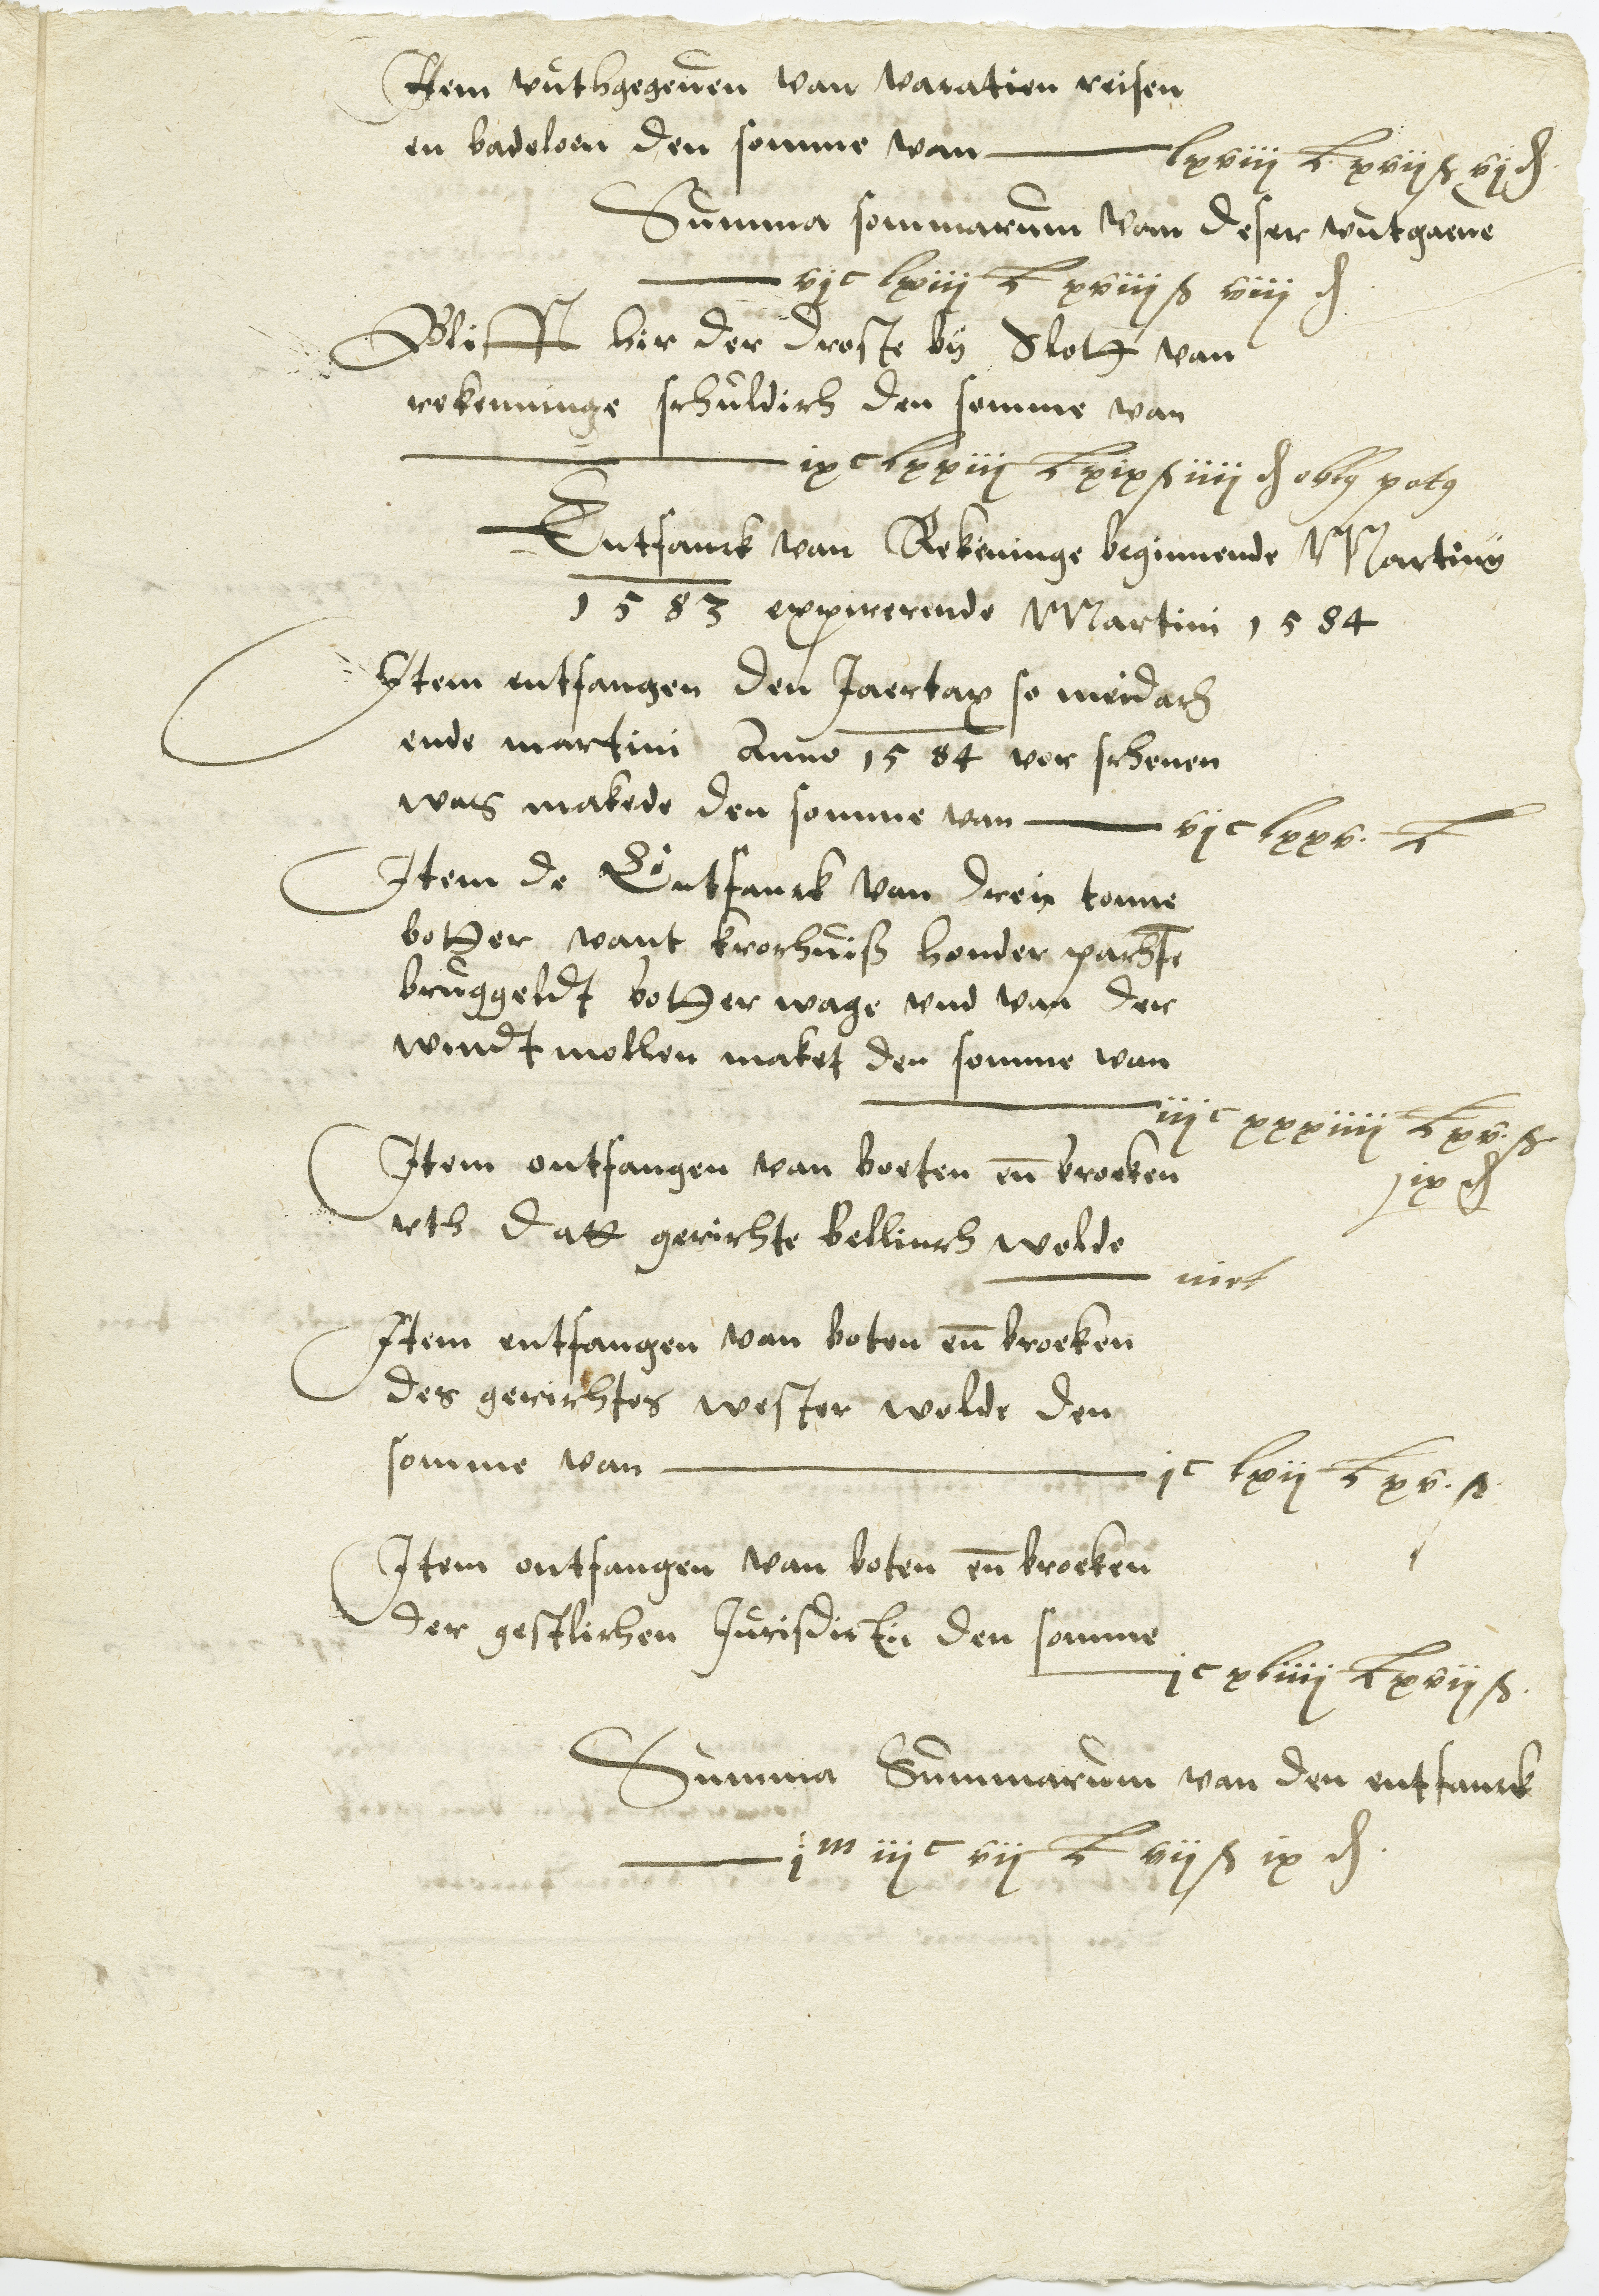 Item wuthgegeuen van vacatien reisen
en badeloen den somme van — lxviij £ xvij ß vj ₰
Summa sommarum van deser wutgaeue
— vjc lxiiij £ xviiij ß viij ₰
Blifft hir der Droste by Slott van
rekenninge schuldich den somme van
— ixc lxxiij £ xix ß iiij ₰
Entfanck van Rekeninge beginnende Martiny
1583 expirerende Martini 1584
Item entfangen den Jaertax so meidach
ende martini Anno 1584 vor schenen
was makede den somme van — vjc lxxv. £
Item de Entfanck van dreij tonne
botter vant krochuiß honder pachte
bruggeldt botter wage vnd van der
windt mollen maket den somme van
— iijc xxxiiij £ xv. ß
ix ₰
Item ontfangen van boeten en̄ broeken
vth datt gerichte bellinch wolde
— niet
Item entfangen van boten en̄ broeken
des gerichtes wester wolde den
somme van — jc lxij £ xv. ß
Item ontfangen van boten en̄ broeken
der gestlichen Jurisdictiu den somme
— jc xliiij £ xvij ß.
Summa Summarum van den entfanck
— jm iijc vij £ vij ß ix ₰.